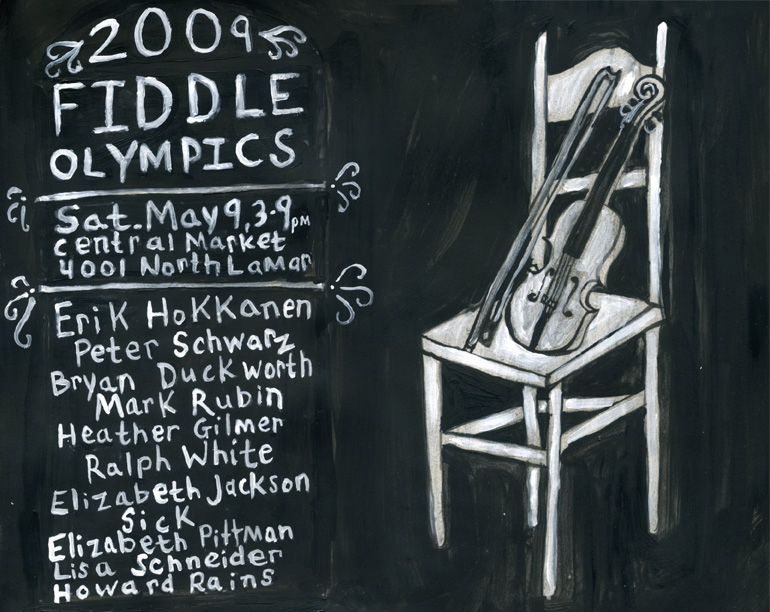 2009
FIDDLE
OLYMPICS
Sat. May 9, 3-9 PM
central Market
4001 North Lamar
Erik Hokkanen
Peter Schwarz
Bryan Duckworth
Mark Rubin
Heather Gilmer
Ralph White
Elizabeth Jackson
Sick
Elizabeth Pittman
Lisa Schneider
Howard Rains